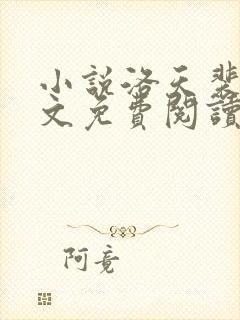 小說洛天裴
文免費閱讀
阿竟